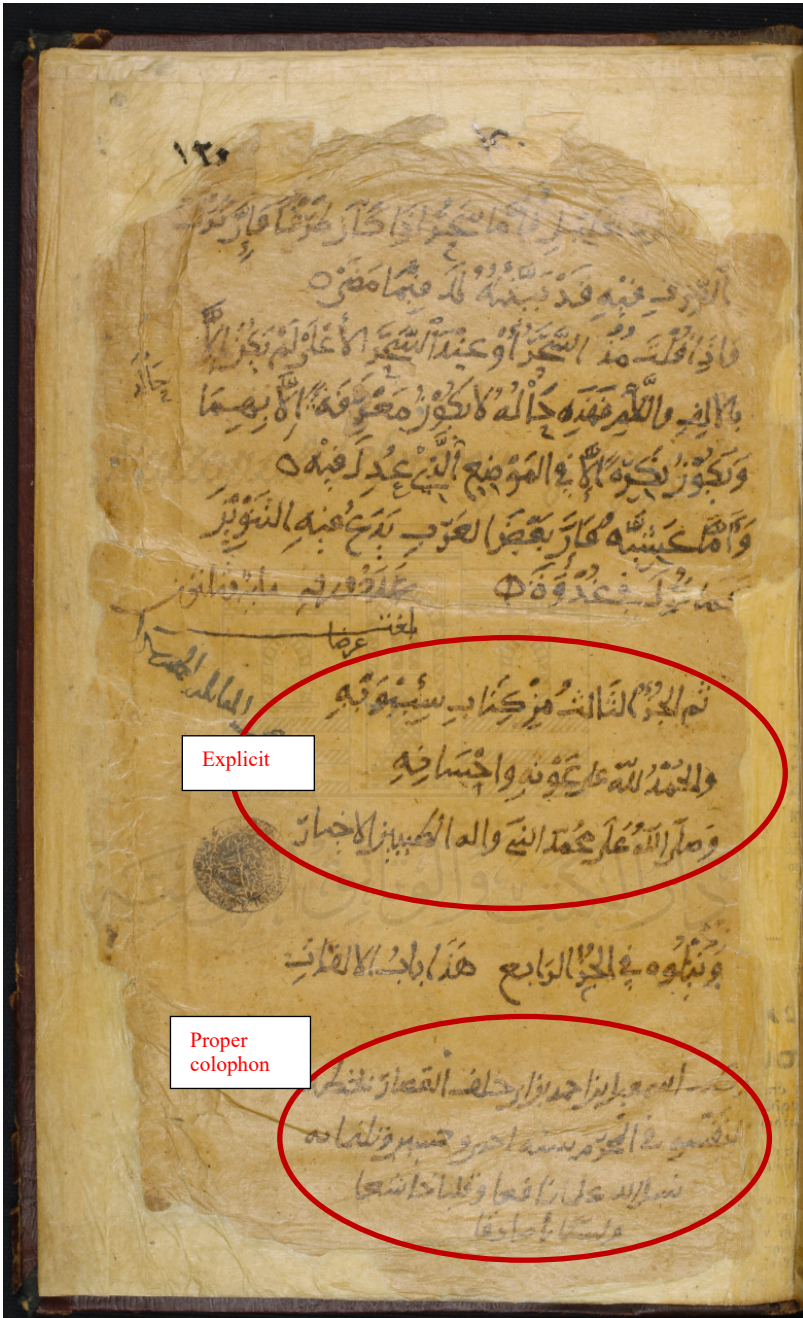 فأما سحر إذا كان ظرفا فإن ترك
الصرف فيه قد بينته لك فيما مضى
فإذا قلت مذ السحر أو عند السحر الأعلى لم يكن إلا
بالألف واللام فهذه حاله لا يكون معرفة إلا بهما
ويكون نكرة إلا في الموضع الذي عدل فيه
وأما عشية فإن بعض العرب يدع فيه التنوين
كما ترك في غدوة
بلغت
عرضا
تم الجزء الثالث من كتاب سيبويه
Explicit
والحمد لله على عونه وإحسانه
وصلى الله على محمد النبي واله الطيبين الاخيار
ويتلوه في الجزء الرابع هذا باب الالقاب
Proper
colophon
كتب اسمعيل بن احمد بن خلف القصار بخطه
لنفسه في المحرم سنه احدى وخمسين وثلثمائه
نسل الله علما نافعا وقلبا خاشعا
ولسانا صادقا